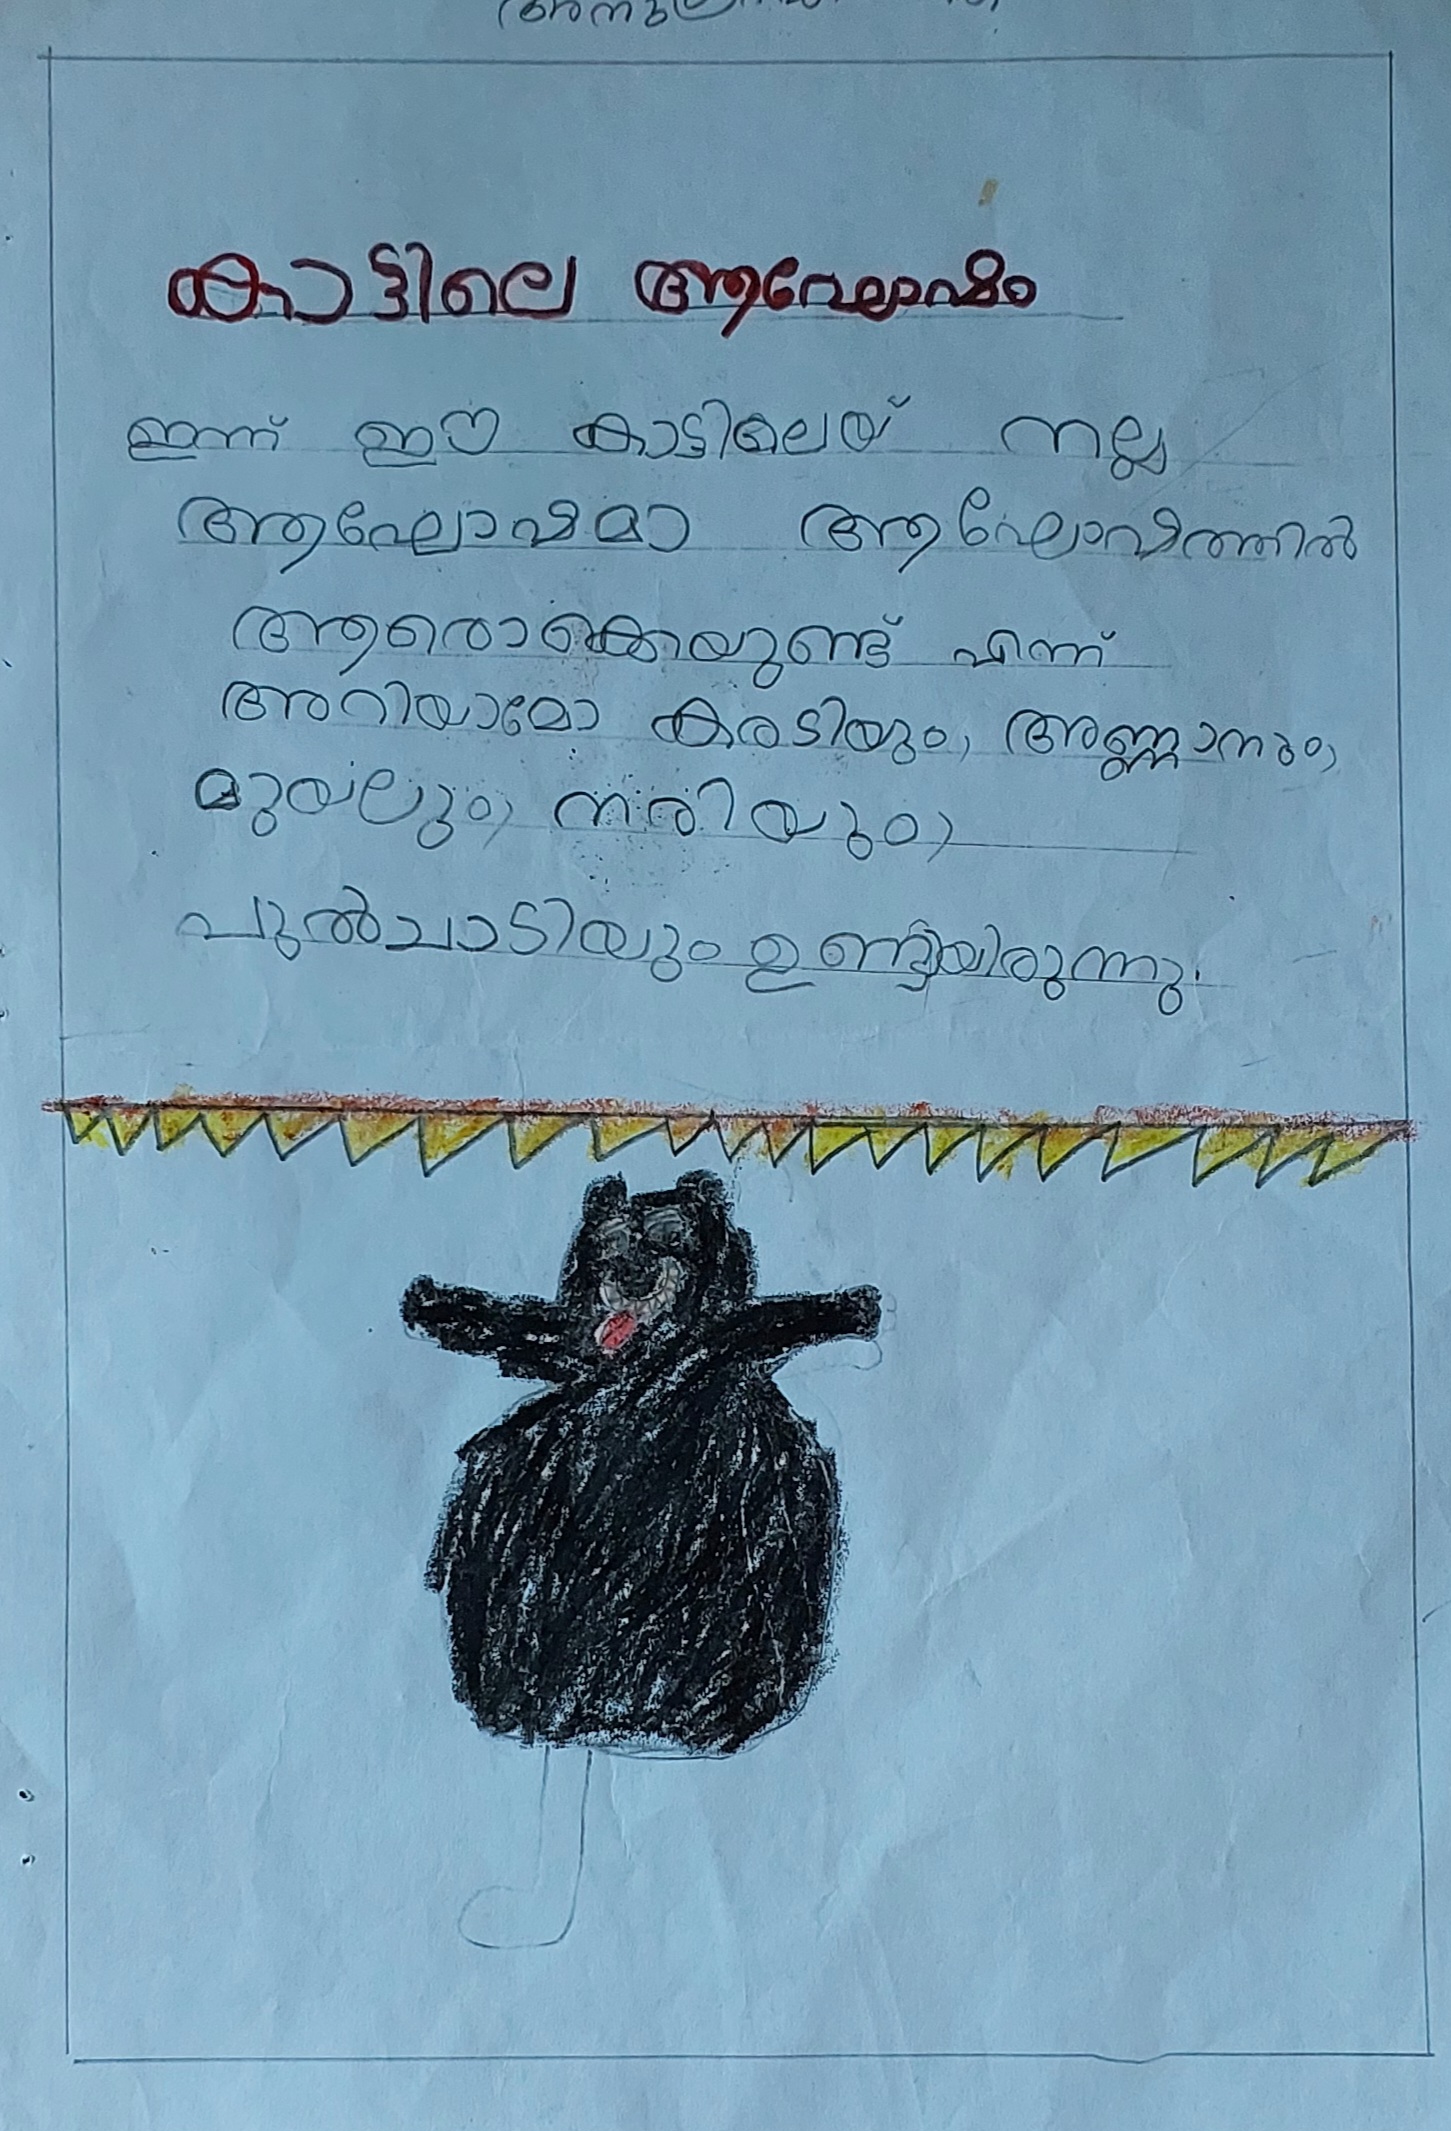 കാട്ടിലെ ആഘോഷം
ഇന്ന് ഈ കാട്ടിലെയ് നല്ല
ആഘോഷമാ ആഘോഷത്തിൽ
ആരൊക്കെയുണ്ട് എന്ന്
അറിയാമോ കരടിയും, അണ്ണാനും,
മുയലും, നരിയും,
പുൽചാടിയും ഉണ്ടായിരുന്നു.